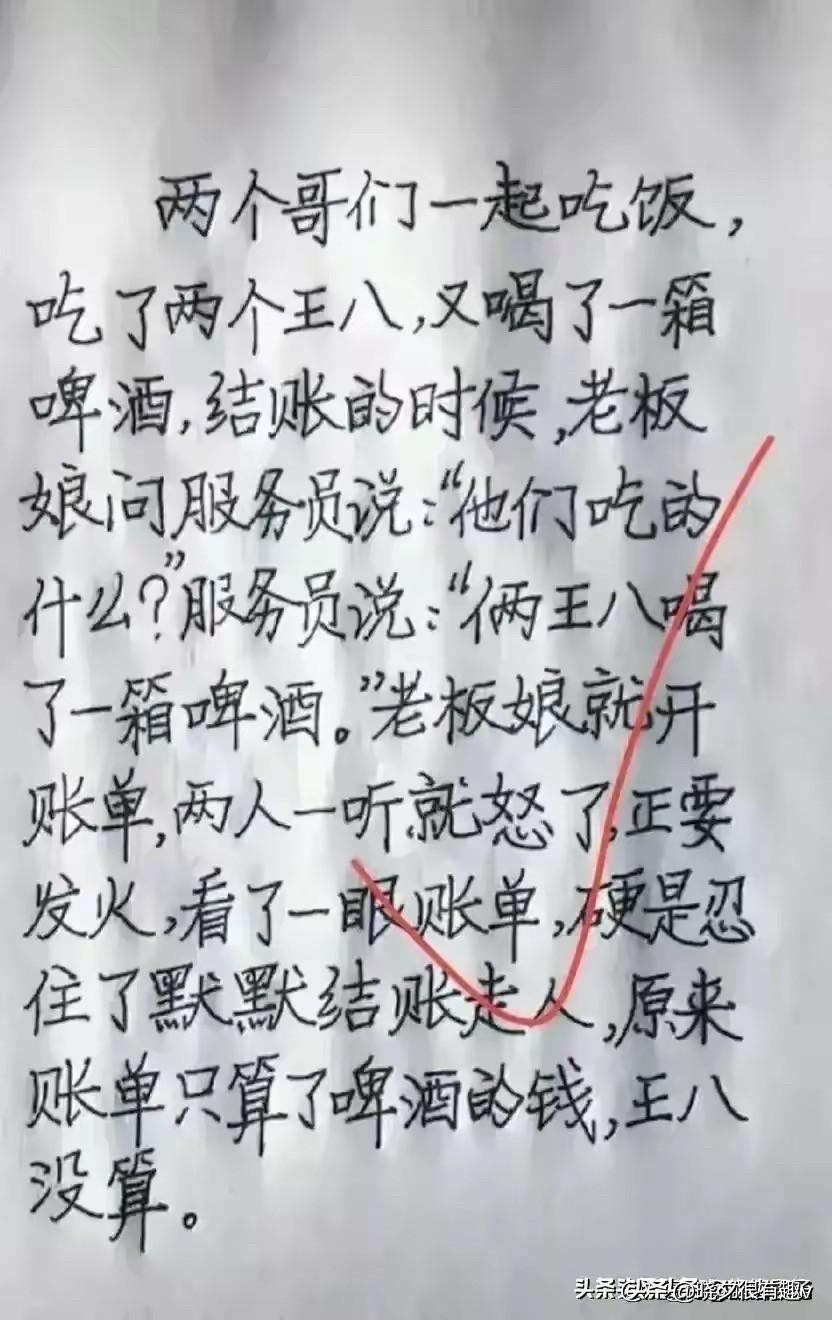 两个哥们一起吃饭，
吃了两个王八，又喝了一箱
啤酒，结账的时候，老板
娘问服务员说：“他们吃的
什么？”服务员说：“俩王八喝
了一箱啤酒。”老板娘就开
账单，两人一听就怒了，正要
发火，看了一眼账单，硬是忍
住了默默结账走人，原来
账单只算了啤酒的钱，王八
没算。